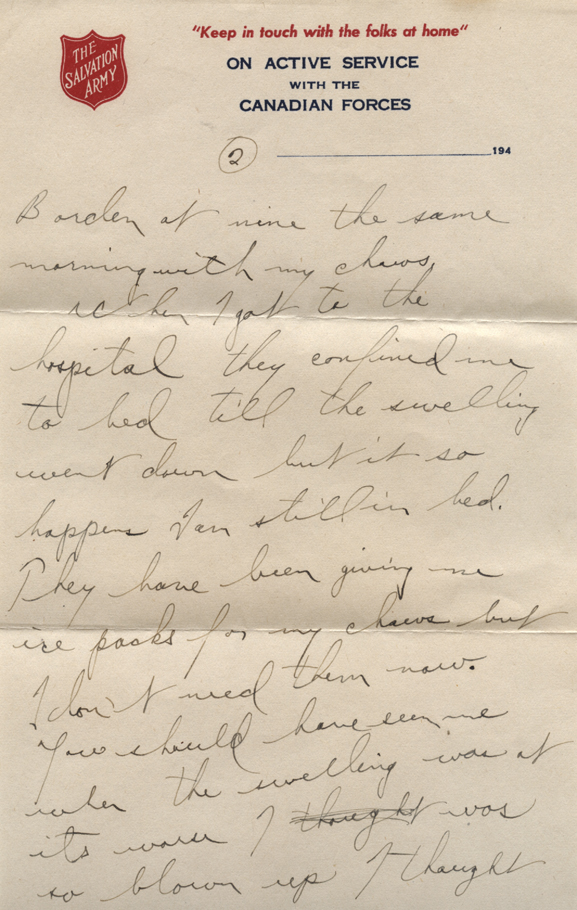 THE
SALVATION
ARMY
"Keep in touch with the folks at home"
ON ACTIVE SERVICE
WITH THE
CANADIAN FORCES
2
194
Borden at nine the same
morning with my chaws,
When I got to the
hospital they confined me
to bed till the swelling
went down but it so
happens I am still in bed.
They have been giving me
ice packs for my chaws but
I don't need them now.
You should have seen me
when the swelling was at
its worse I thought was
so blown up I thought